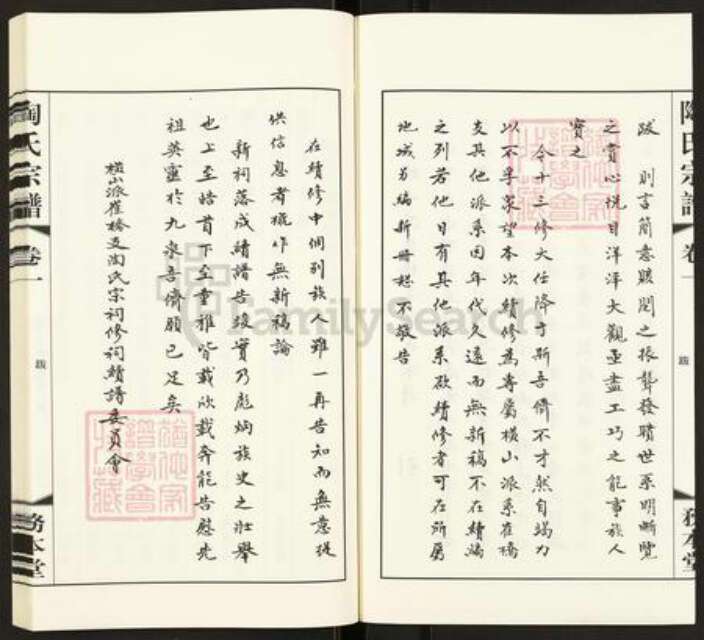 陶氏宗譜
卷一
跋
務本堂
跋　則言簡意賅閱之振聾發聵世系明晰覽
之賞心悅目洋洋大觀亟盡工巧之能事族人
寶之
今十三修大任降于斯吾儕不才然自竭力
以不孚眾望本次續修為專屬橫山派系崔橋
支其他派系因年代久遠而無新稿不在續編
之列若他日有其他派系欲續修者可在所屬
地域另編新冊恕不敬告
在續修中個別族人雖一再告知而無意提
供信息者概作無新稿論
新祠落成續譜告竣實乃彪炳族史之壯舉
也上至耆首下至童稚皆載欣載奔能告慰先
祖英靈於九泉吾儕願已足矣
橫山派崔橋支陶氏宗祠修祠續譜委員會
陶氏宗譜
卷一
跋
務本堂
FamilySearch